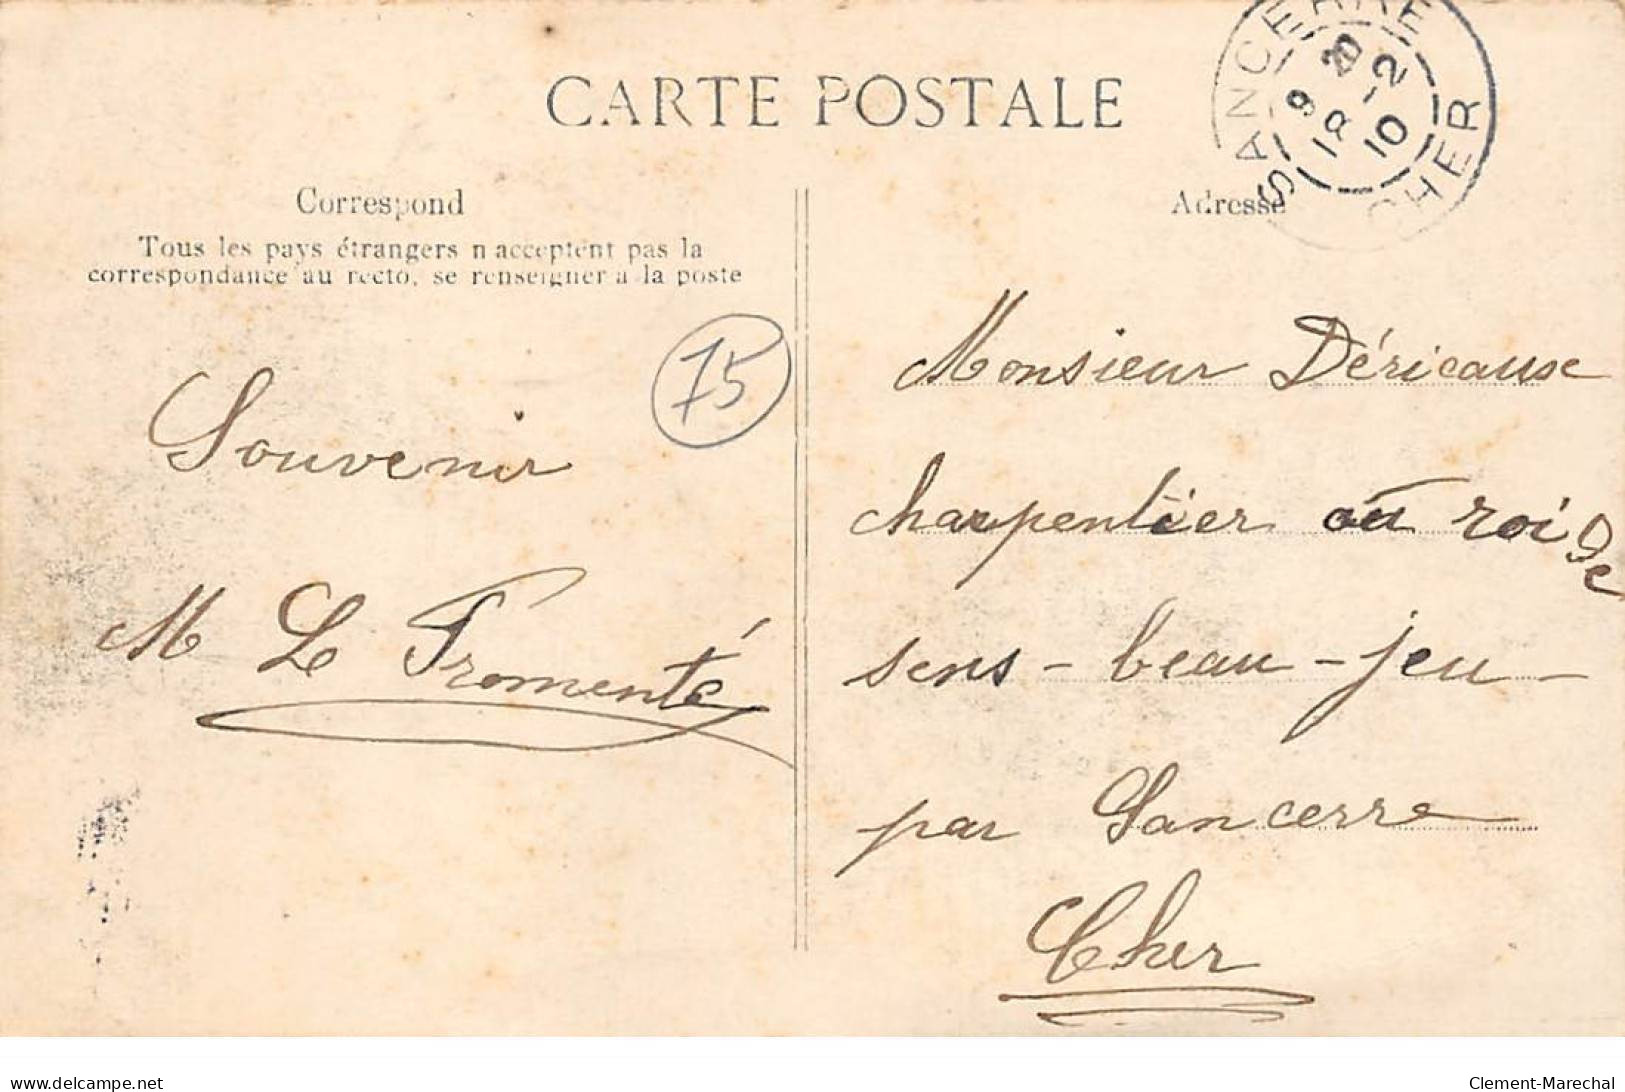 CARTE POSTALE
SANCERRE
9 20
18 -2
10
CHER
Correspond
Adresse
Tous les pays étrangers n acceptent pas la
correspondance au recto, se renseigner a la poste
75
Souvenir
M Le Fromenté
Monsieur Déricause
charpentier au roi De
sens - beau - jeu -
par Sancerre
Cher
www.delcampe.net
Clement-Marechal